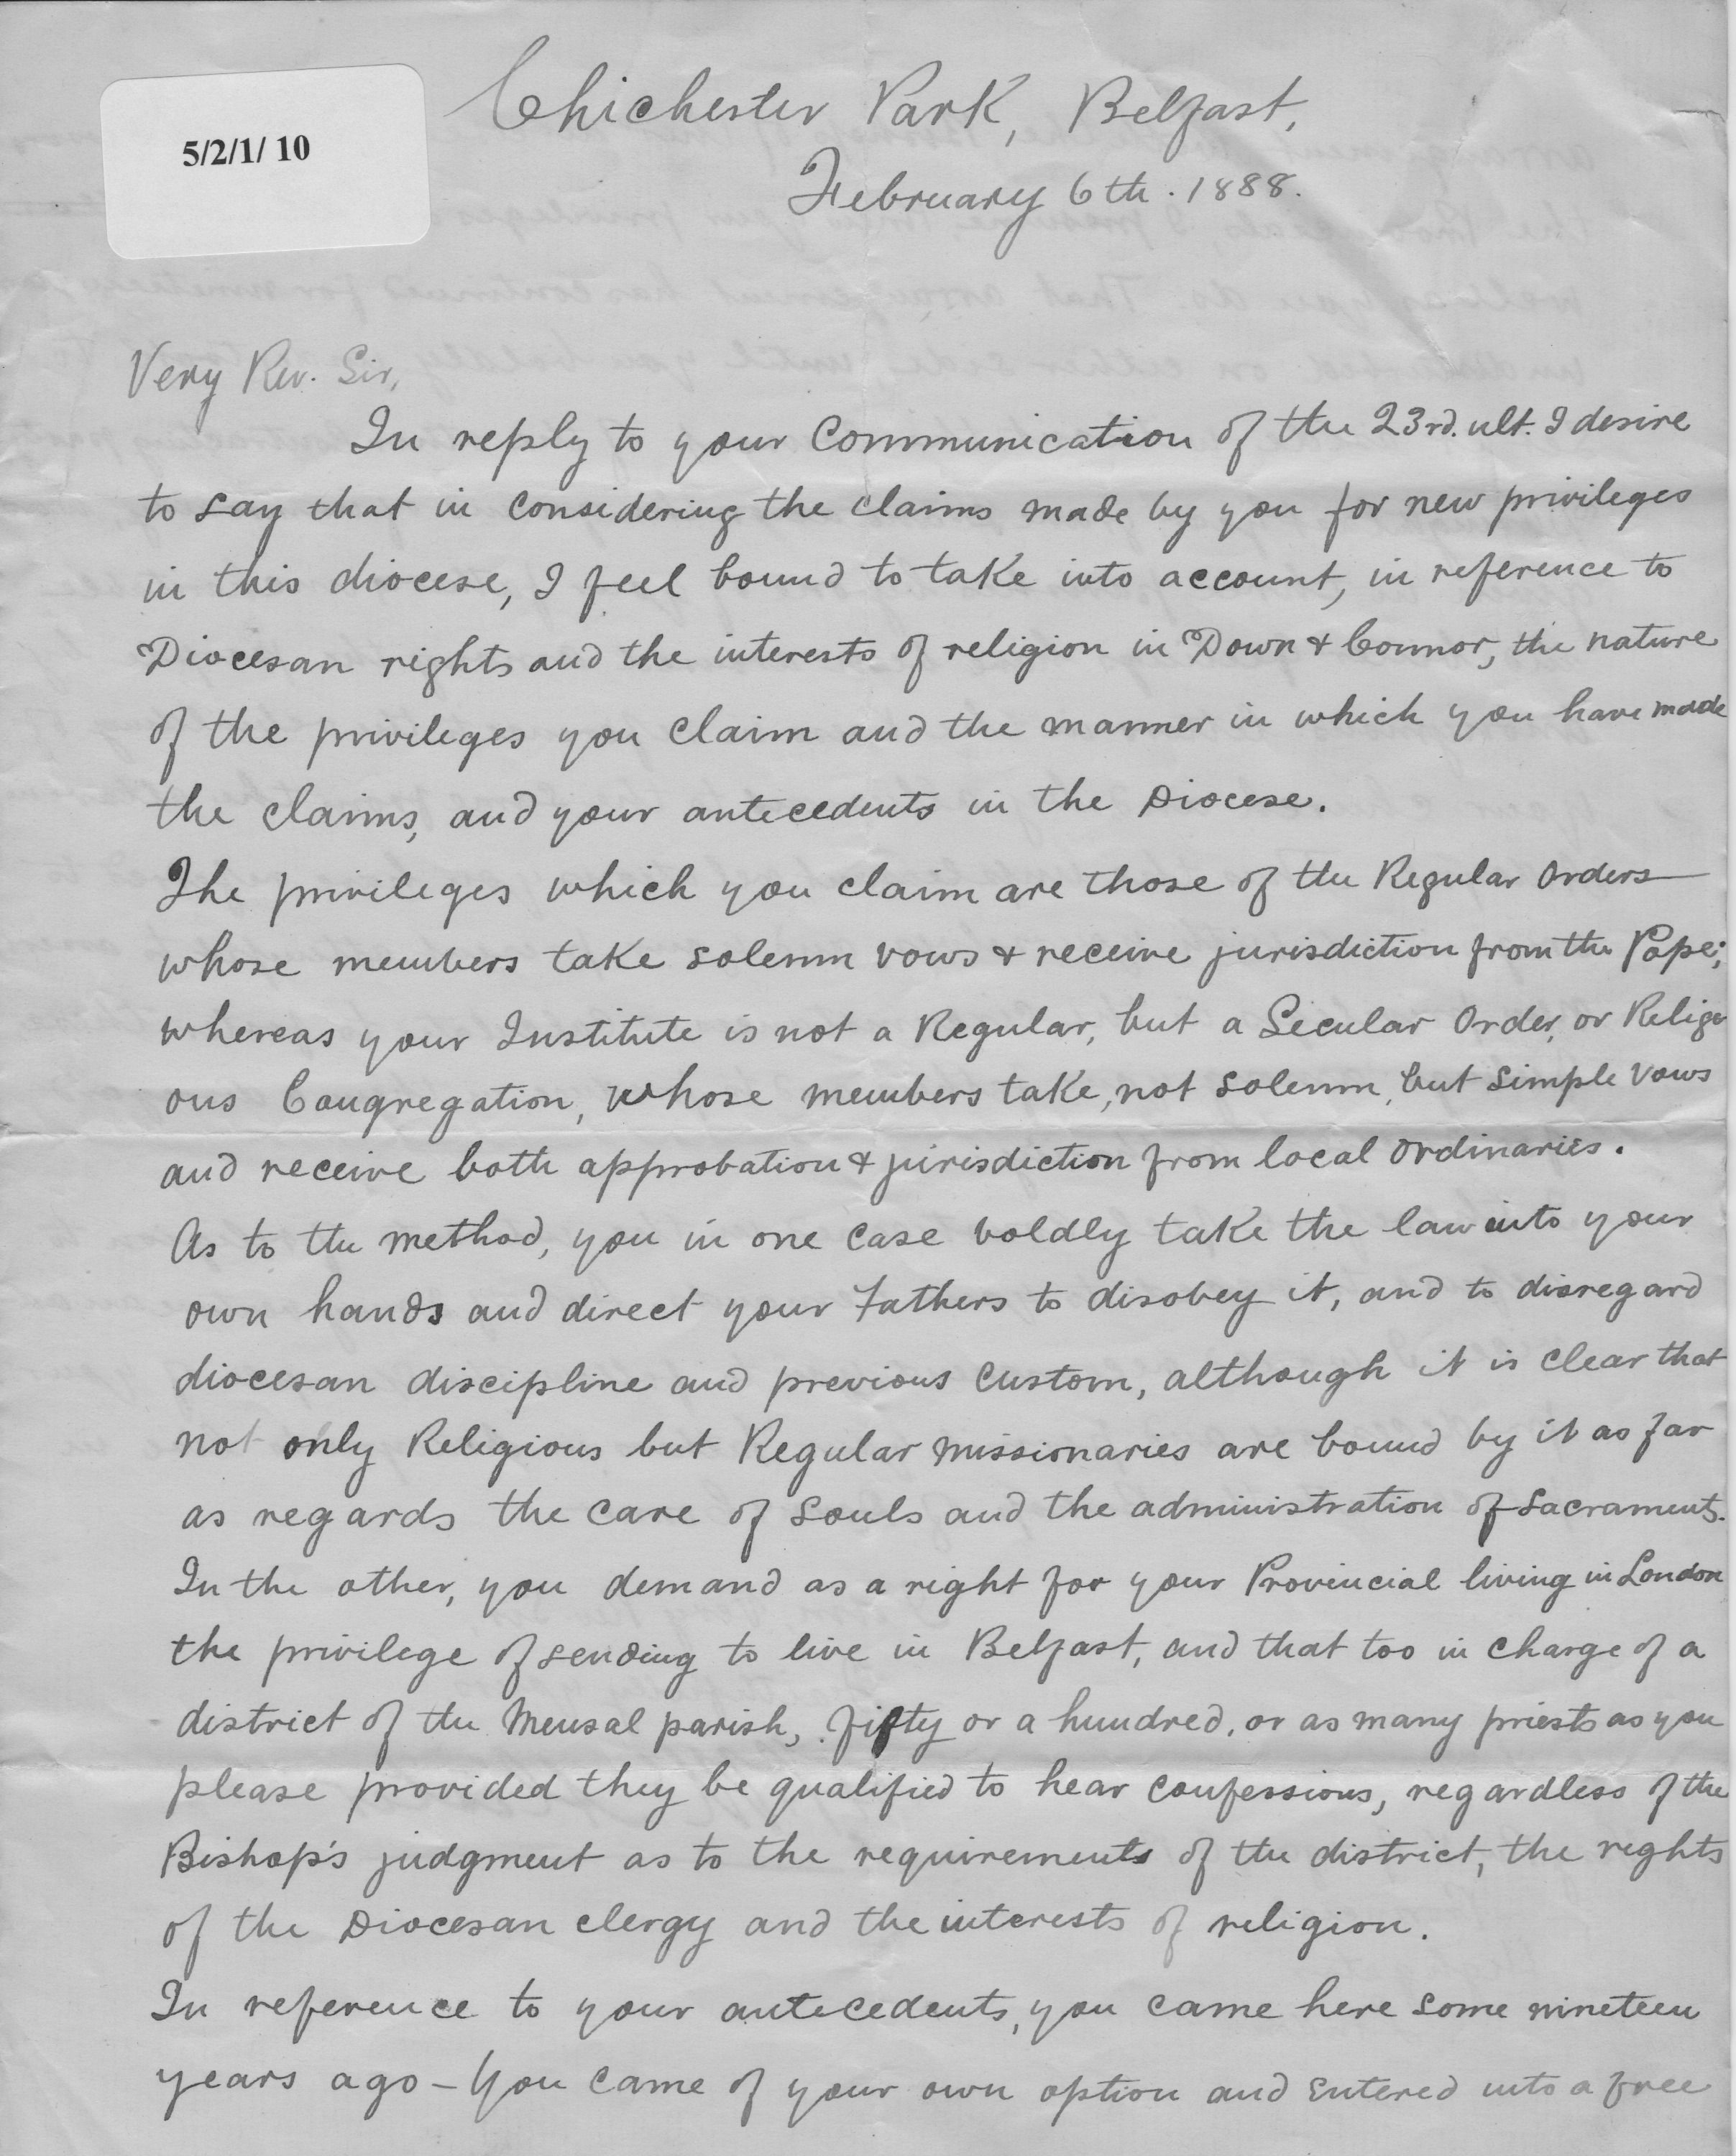 5/2/1/ 10
Chichester Park, Belfast,
February 6th. 1888.
Very Rev. Sir,
In reply to your Communication of the 23rd. ult. I desire
to say that in considering the claims made by you for new privileges
in this diocese, I feel bound to take into account, in reference to
Diocesan rights and the interests of religion in Down & Connor, the nature
of the privileges you claim and the manner in which you have made
the claims, and your antecedents in the Diocese.
The privileges which you claim are those of the Regular Orders
whose members take solemn vows & receive jurisdiction from the Pope;
whereas your Institute is not a Regular, but a Secular Order, or Religi
ous Congregation, whose members take, not solemn, but simple vows
and receive both approbation & jurisdiction from local Ordinaries.
As to the method, you in one case boldly take the law into your
own hands and direct your Fathers to disobey it, and to disregard
diocesan discipline and previous custom, although it is clear that
not only Religious but Regular missionaries are bound by it as far
as regards the care of souls and the administration of sacraments.
In the other, you demand as a right for your Provincial living in London
the privilege of sending to live in Belfast, and that too in charge of a
district of the Mensal parish, fifty or a hundred, or as many priests as you
please provided they be qualified to hear confessions, regardless of the
Bishop's judgment as to the requirements of the district, the rights
of the Diocesan clergy and the interests of religion.
In reference to your antecedents, you came here some nineteen
years ago - You came of your own option and entered into a free